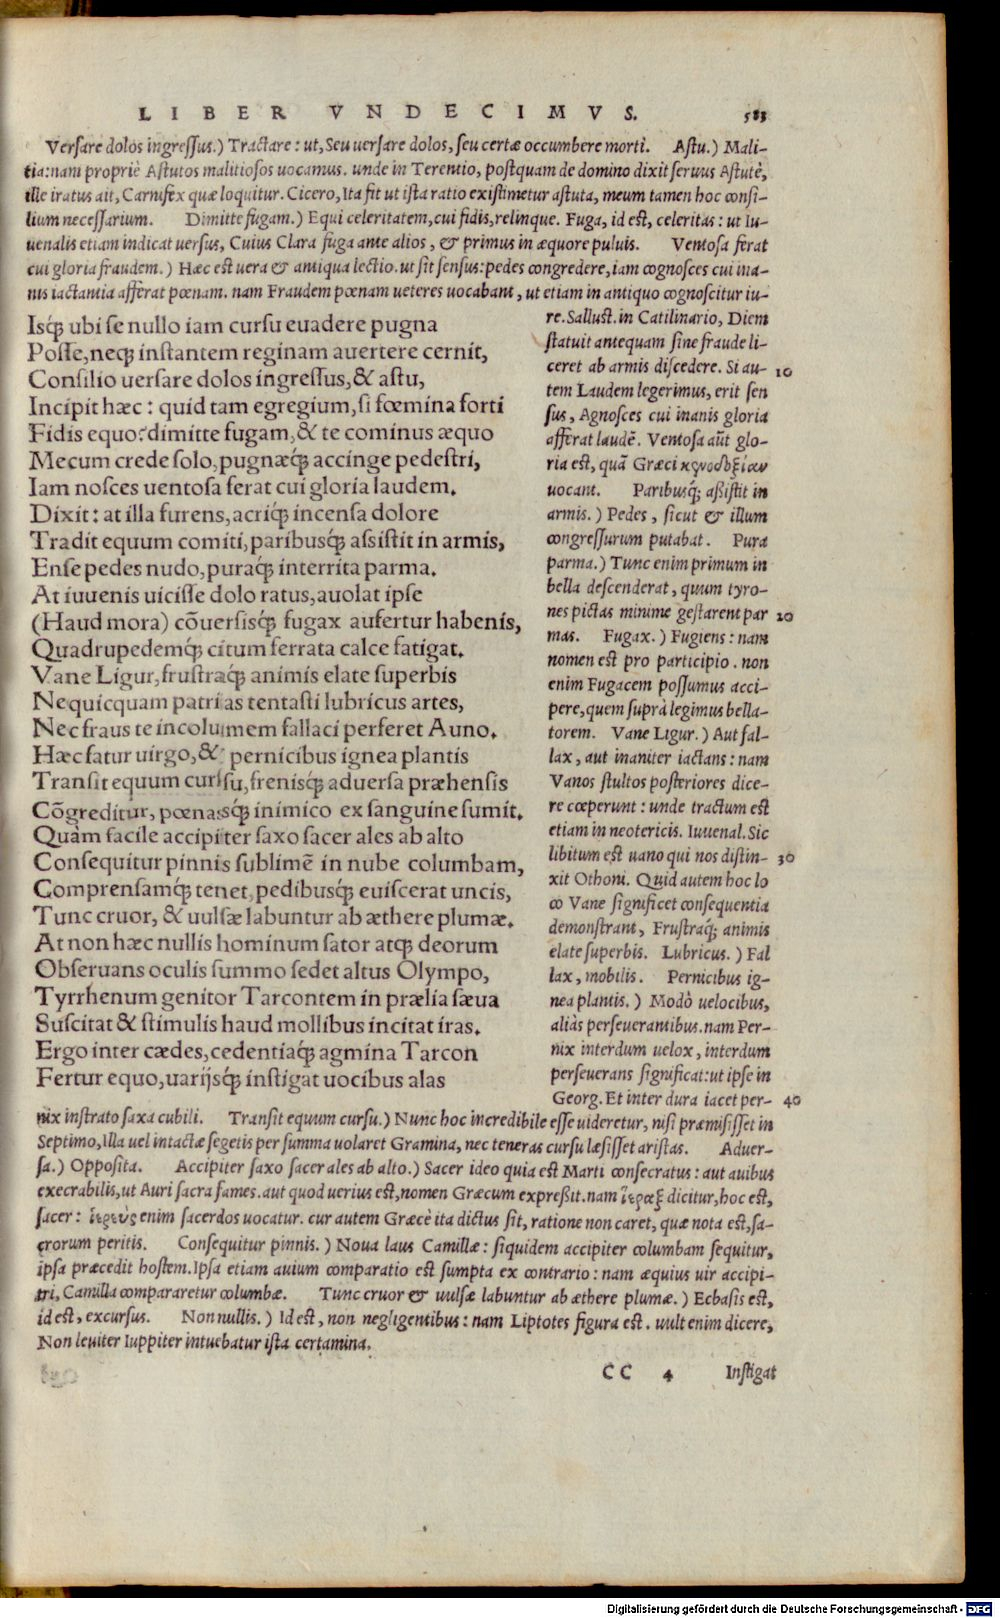 LIBER VNDECIMVS. 583
Versare dolos ingressus.) Tractare: ut, Seu uersare dolos, seu certæ occumbere morti. Astu.) Mali-
tia: nam propriè Astutos malitiosos uocamus. unde in Terentio, postquam de domino dixit seruus Astutè,
ille iratus ait, Carnifex quæ loquitur. Cicero, Ita fit ut ista ratio existimetur astuta, meum tamen hoc consi-
lium necessarium. Dimitte fugam.) Equi celeritatem, cui fidis, relinque. Fuga, id est, celeritas: ut Iu-
uenalis etiam indicat uersus, Cuius Clara fuga ante alios, & primus in æquore puluis. Ventosa ferat
cui gloria fraudem.) Hæc est uera & antiqua lectio. ut sit sensus: pedes congredere, iam cognosces cui ina-
nis iactantia afferat pœnam. nam Fraudem pœnam ueteres uocabant, ut etiam in antiquo cognoscitur iu-
Isq́; ubi se nullo iam cursu euadere pugna
Posse, neq; instantem reginam auertere cernit,
Consilio uersare dolos ingressus, & astu,
Incipit hæc: quid tam egregium, si fœmina forti
Fidis equo? dimitte fugam, & te cominus æquo
Mecum crede solo, pugnæq́; accinge pedestri,
Iam nosces uentosa ferat cui gloria laudem.
Dixit: at illa furens, acriq́; incensa dolore
Tradit equum comiti, paribusq́; assistit in armis,
Ense pedes nudo, puraq́; interrita parma.
At iuuenis uicisse dolo ratus, auolat ipse
(Haud mora) cōuersisq́; fugax aufertur habenis,
Quadrupedemq́; citum ferrata calce fatigat.
Vane Ligur, frustraq́; animis elate superbis
Nequicquam patrias tentasti lubricus artes,
Nec fraus te incolumem fallaci perferet Auno.
Hæc fatur uirgo, & pernicibus ignea plantis
Transit equum cursu, frenisq́; aduersa præhensis
Cōgreditur, pœnasq́; inimico ex sanguine sumit.
Quàm facile accipiter saxo sacer ales ab alto
Consequitur pinnis sublimē in nube columbam,
Comprensamq́; tenet, pedibusq́; euiscerat uncis,
Tunc cruor, & uulsæ labuntur ab æthere plumæ.
At non hæc nullis hominum sator atq; deorum
Obseruans oculis summo sedet altus Olympo,
Tyrrhenum genitor Tarcontem in prælia sæua
Suscitat & stimulis haud mollibus incitat iras.
Ergo inter cædes, cedentiaq́; agmina Tarcon
Fertur equo, uarijsq́; instigat uocibus alas
re. Sallust. in Catilinario, Diem
statuit antequam sine fraude li-
ceret ab armis discedere. Si au- 10
tem Laudem legerimus, erit sen
sus, Agnosces cui inanis gloria
afferat laudē. Ventosa aūt glo-
ria est, quā Græci κενοδοξίαν
uocant. Paribusq́; assistit in
armis.) Pedes, sicut & illum
congressurum putabat. Pura
parma.) Tunc enim primum in
bella descenderat, quum tyro-
nes pictas minime gestarent par 20
mas. Fugax.) Fugiens: nam
nomen est pro participio. non
enim Fugacem possumus acci-
pere, quem suprà legimus bella-
torem. Vane Ligur.) Aut fal-
lax, aut inaniter iactans: nam
Vanos stultos posteriores dice-
re cœperunt: unde tractum est
etiam in neotericis. Iuuenal. Sic
libitum est uano qui nos distin- 30
xit Othoni. Quid autem hoc lo
co Vane significet consequentia
demonstrant, Frustraq́; animis
elate superbis. Lubricus.) Fal
lax, mobilis. Pernicibus ig-
nea plantis.) Modò uelocibus,
aliàs perseuerantibus. nam Per-
nix interdum uelox, interdum
perseuerans significat: ut ipse in
Georg. Et inter dura iacet per- 40
nix instrato saxa cubili. Transit equum cursu.) Nunc hoc incredibile esse uideretur, nisi præmisisset in
Septimo, Illa uel intactæ segetis per summa uolaret Gramina, nec teneras cursu læsisset aristas. Aduer-
sa.) Opposita. Accipiter saxo sacer ales ab alto.) Sacer ideo quia est Marti consecratus: aut auibus
execrabilis, ut Auri sacra fames. aut quod uerius est, nomen Græcum expreßit. nam ἱέραξ dicitur, hoc est,
sacer: ἱερεὺς enim sacerdos uocatur. cur autem Græcè ita dictus sit, ratione non caret, quæ nota est, sa-
crorum peritis. Consequitur pinnis.) Noua laus Camillæ: siquidem accipiter columbam sequitur,
ipsa præcedit hostem. Ipsa etiam auium comparatio est sumpta ex contrario: nam æquius uir accipi-
tri, Camilla compararetur columbæ. Tunc cruor & uulsæ labuntur ab æthere plumæ.) Ecbasis est,
id est, excursus. Non nullis.) Id est, non negligentibus: nam Liptotes figura est. uult enim dicere,
Non leuiter Iuppiter intuebatur ista certamina.
CC 4 Instigat
Digitalisierung gefördert durch die Deutsche Forschungsgemeinschaft - DFG